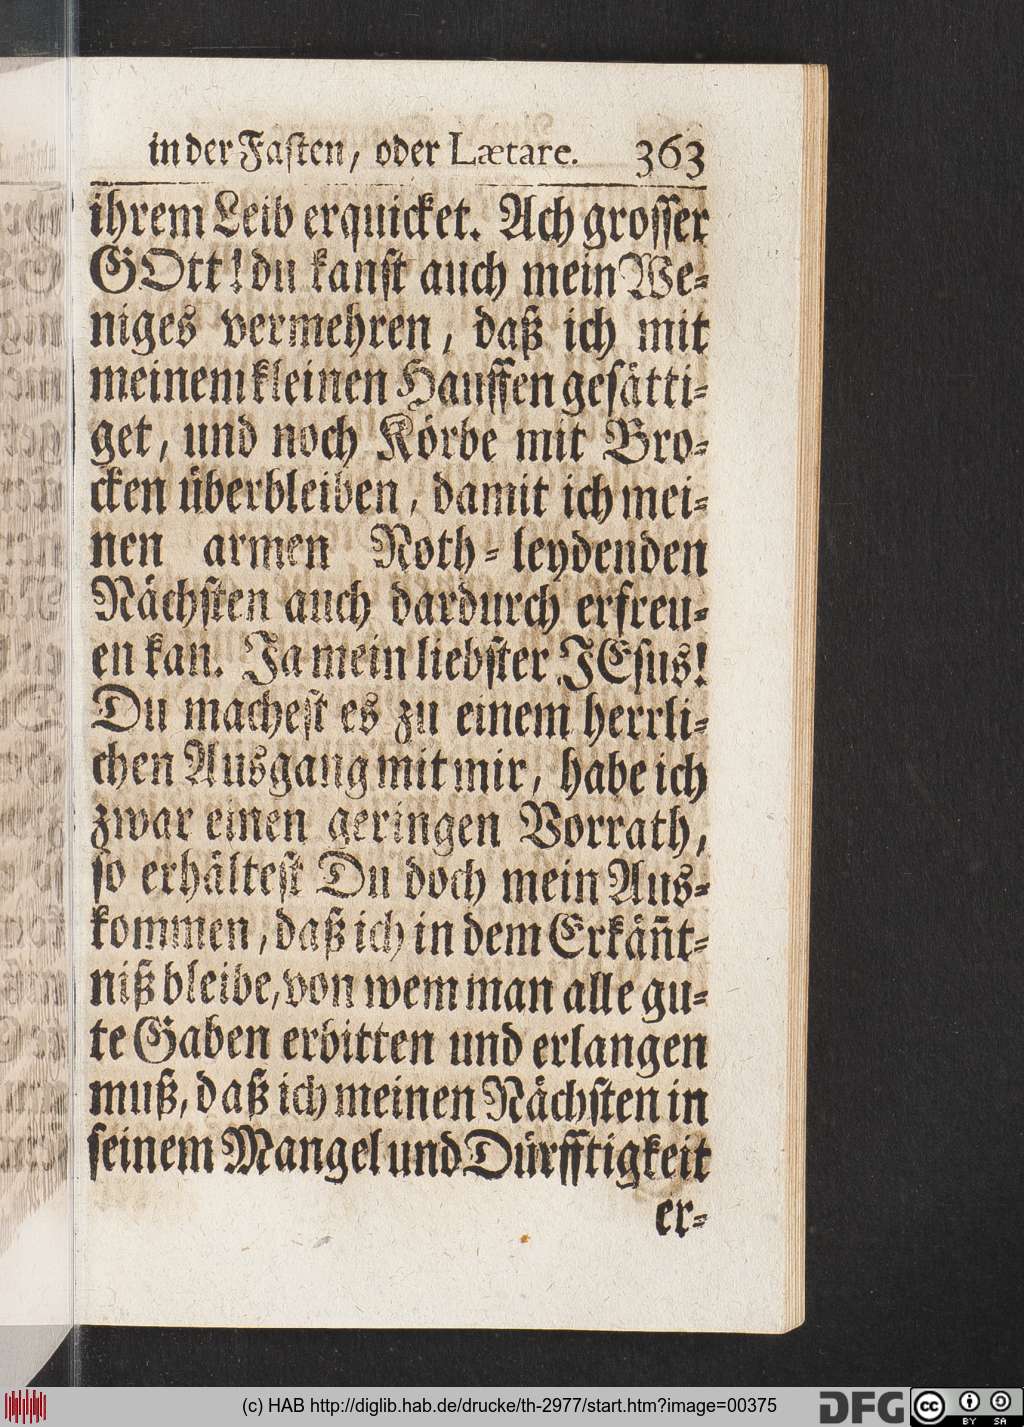 in der Fasten, oder Lætare. 363
ihrem Leib erquicket. Ach grosser
GOtt! du kanst auch mein We-
niges vermehren, daß ich mit
meinem kleinen Hauffen gesätti-
get, und noch Körbe mit Bro-
cken überbleiben, damit ich mei-
nen armen Noth-leydenden
Nächsten auch dardurch erfreu-
en kan. Ja mein liebster JEsus!
Du machest es zu einem herrli-
chen Ausgang mit mir, habe ich
zwar einen geringen Vorrath,
so erhältest Du doch mein Aus-
kommen, daß ich in dem Erkäñt-
niß bleibe, von wem man alle gu-
te Gaben erbitten und erlangen
muß, daß ich meinen Nächsten in
seinem Mangel und Dürfftigkeit
er-
(c) HAB http://diglib.hab.de/drucke/th-2977/start.htm?image=00375
DFG
cc BY SA